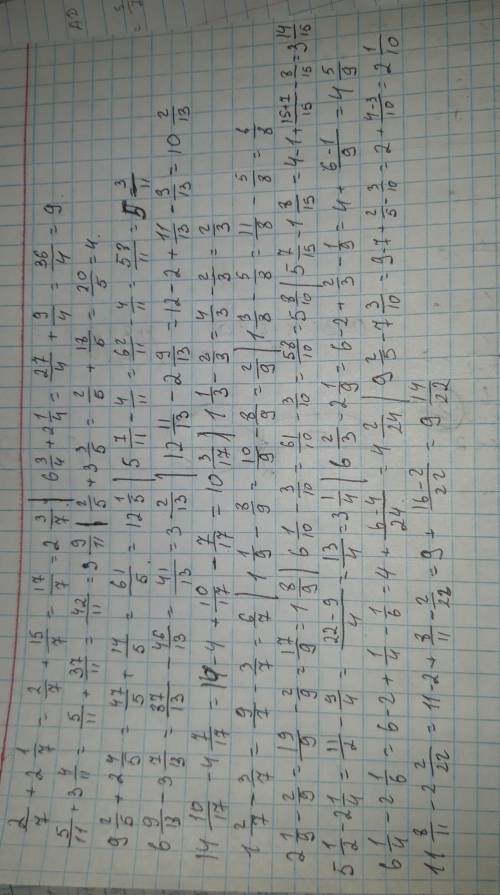 2/7 + 2 1/7 = 2/7 + 15/7 = 17/7 = 2 3/7 | 6 3/4 + 2 1/4 = 27/4 + 9/4 = 36/4 = 9.
5/11 + 3 4/11 = 5/11 + 37/11 = 42/11 = 3 9/11 | 2/5 + 3 3/5 = 2/5 + 18/5 = 20/5 = 4.
9 2/5 + 2 4/5 = 47/5 + 14/5 = 61/5 = 12 1/5 | 5 7/11 - 4/11 = 62/11 - 4/11 = 58/11 = 5 3/11
6 9/13 - 3 7/13 = 87/13 - 46/13 = 41/13 = 3 2/13 | 12 11/13 - 2 9/13 = 12 - 2 + 11/13 - 9/13 = 10 2/13
14 10/17 - 4 7/17 = 14 - 4 + 10/17 - 7/17 = 10 3/17 | 1 1/3 - 2/3 = 4/3 - 2/3 = 2/3
1 2/7 - 3/7 = 9/7 - 3/7 = 6/7 | 1 1/9 - 8/9 = 10/9 - 8/9 = 2/9 | 1 3/8 - 5/8 = 11/8 - 5/8 = 6/8
2 1/9 - 2/9 = 19/9 - 2/9 = 17/9 = 1 8/9 | 6 1/10 - 3/10 = 61/10 - 3/10 = 58/10 = 5 8/10 | 5 7/15 - 1 8/15 = 4 - 1 + 15+7/15 - 8/15 = 3 14/15
5 1/2 - 2 1/4 = 11/2 - 9/4 = 22-9/4 = 13/4 = 3 1/4 | 6 2/3 - 2 1/9 = 6 - 2 + 2/3 - 1/9 = 4 + 6-1/9 = 4 5/9
6 1/4 - 2 1/6 = 6 - 2 + 1/4 - 1/6 = 4 + 6-4/24 = 4 2/24 | 9 2/5 - 7 3/10 = 9 - 7 + 2/5 - 3/10 = 2 + 4-3/10 = 2 1/10
11 8/11 - 2 2/22 = 11 - 2 + 8/11 - 2/22 = 9 + 16-2/22 = 9 14/22